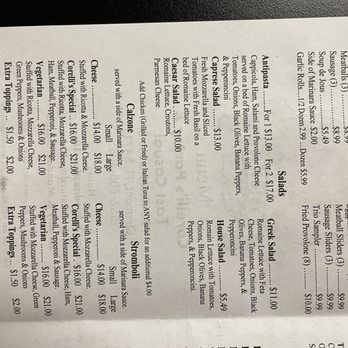 Meatballs (3)
Sausage (3) $8.99
Soup de Jous $5.49
Side of Marinara Sauce $2.00
Garlic Rolls... 1/2 Dozen 2.99 .. Dozen $5.99
Meatball Sliders $9.99
Sausage Sliders (3) $9.99
Trio Sampler $9.99
Fried Provolone (8) $10.00
Salads
Antipasta ....For 1 $13.00 For 2 $17.00
Cappicola, Ham, Salami and Provolone Cheese
served on a bed of Romaine Lettuce with
Tomatoes, Onions, Black Olives, Banana Peppers,
& Pepperoncini
Caprise Salad $13.00
Fresh Mozzarella and Sliced
Tomatoes with Fresh Basil on a
bed of Romaine Lettuce
Caesar Salad $10.00
Romaine Lettuce, Croutons,
Parmesan Cheese
Greek Salad $11.00
Romaine Lettuce with Feta
Cheese, Tomatoes, Onions, Black
Olives, Banana Peppers, &
Pepperoncini
House Salad $5.49
Romain Lettuce with Tomatoes,
Onions, Black Olives, Banana
Peppers, & Pepperoncini.
Add Chicken (Grilled or Fried) or Italian Tuna to ANY salad for an additional $4.00
Calzone
served with a side of Marinara Sauce.
Small Large
Cheese $14.00 $18.00
Stuffed with Ricotta & Mozzarella Cheese.
Corelli's Special $16.00 $21.00
Stuffed with Ricotta, Mozzarella Cheese,
Ham, Meatball, Pepperoni, & Sausage.
Vegetarian $16.00 $21.00
Stuffed with Ricotta, Mozzarella Cheese,
Green Peppers, Mushrooms & Onions
Extra Toppings $1.50 $2.00
Stromboli
served with a side of Marinara Sauce.
Small Large
Cheese $14.00 $18.00
Stuffed with Mozzarella Cheese.
Corelli's Special $16.00 $21.00
Stuffed with Mozzarella Cheese, Ham,
Meatball, Pepperoni & Sausage.
Vegetarian $16.00 $21.00
Stuffed with Mozzarella Cheese, Green
Peppers, Mushrooms & Onions
Extra Toppings $1.50 $2.00